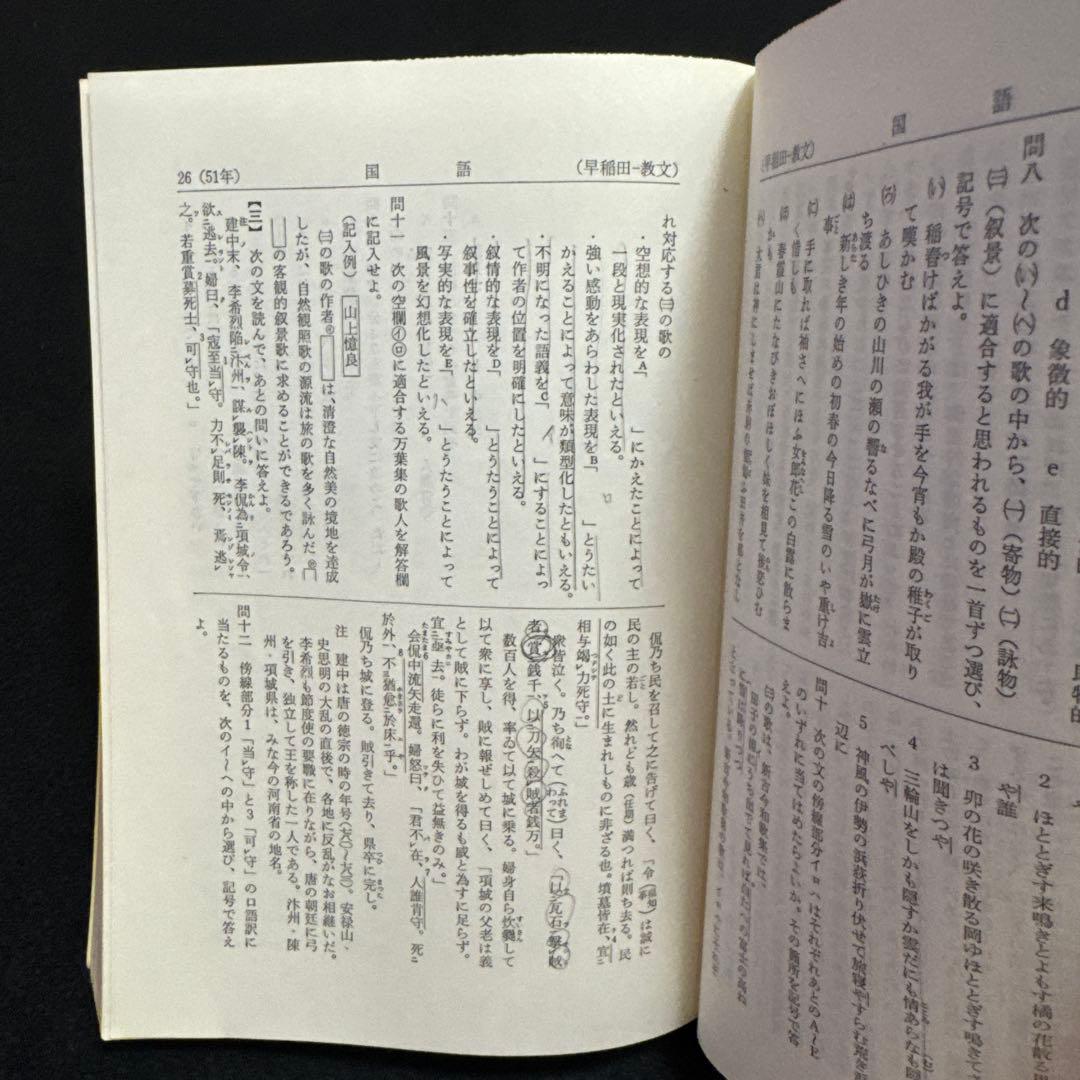 26(51年)
国語
(早稲田ー教文)
れ対応する㈢の歌の
・空想的な表現をA「 」にかえたことによって
一段と現実化されたといえる。
・強い感動をあらわした表現をB「 」とうたい
かえることによって意味が類型化したともいえる。
・不明になった語義をC「 」にすることによっ
て作者の位置を明確にしたといえる。
・叙情的な表現をD「 」とうたうことによって
叙事性を確立しだといえる。
・写実的な表現をE「 」とうたうことによって
風景を幻想化したといえる。
問十一 次の空欄㋑㋺に適合する万葉集の歌人を解答欄
に記入せよ。
(記入例) 山上憶良
㈢の歌の作者㋑ は、清澄な自然美の境地を達成
したが、自然観照歌の源流は旅の歌を多く詠んだ㋺
の客観的叙景歌に求めることができるであろう。
【三】 次の文を読んで、あとの問いに答えよ。
建中末、李希烈陥汴州、謀襲陳。李侃為項城令、
欲逃去。婦曰、「寇至当守。力不足則死、焉逃
之。若重賞募死士、可守也。」
侃乃ち民を召して之に告げて曰く、「令(県知事)は誠に
民の主の若し。然れども歳(任期)満つれば則ち去る。民
の如く此の土に生まれしものに非ざる也。墳墓皆在、宜
相与竭力死守。」
衆皆泣く。乃ち徇へて曰く、「以瓦石撃賊
者、賞銭千、以刀矢殺賊者銭万。」
数百人を得、率ゐて以て城に乗る。婦身自ら炊爨して
以て衆に享し、賊に報ぜしめて曰く、「項城の父老は義
として賊に下らず。わが城を得るも威と為すに足らず。
宜亟去。徒らに利を失ひて益無きのみ。」
会侃中流矢走還。婦怒曰、「君不在、人誰肯守。死
於外、不猶愈於床乎。」
侃乃ち城に登る。賊引きて去り、県卒に完し。
注 建中は唐の徳宗の時の年号(七八〇〜七八三)。安禄山・
史思明の大乱の直後で、各地に反乱がなお相継いだ。
李希烈も節度使の要職に在りながら、唐の朝廷に弓
を引き、独立して王を称した一人である。汴州・陳
州・項城県は、みな今の河南省の地名。
問十二 傍線部分1「当守」と3「可守」の口語訳に
当たるものを、次のイ〜ヘの中から選び、記号で答え
よ。
国語
(早稲田ー教文)
d 象徴的 e 直接的
問八 次の㈠〜㈥の歌の中から、㈠(寄物)㈡(詠物)
㈢(叙景)に適合すると思われるものを一首ずつ選び、
記号で答えよ。
(い) 稲舂けばかがる我が手を今宵もか殿の稚子が取り
て嘆かむ
(ろ) あしひきの山川の瀬の響るなべに弓月が嶽に雲立
ち渡る
(は) 新しき年の始めの初春の今日降る雪のいや重け吉
事
(に) 手に取れば袖さへにほふ女郎花この白露に散らま
く惜しも
(ほ) 春霞山にたなびきおほほしく妹を相見て後恋ひむ
かも
2 ほととぎす来鳴きとよもす橘の花散る
や誰
3 卯の花の咲き散る岡ゆほととぎす鳴きて
は聞きつや
4 三輪山をしかも隠すか雲だにも情あらなも
べしや
5 神風の伊勢の浜荻折り伏せて旅寝やすらむ荒き
辺に
問十 次の文の傍線部分イ〜ヘはそれぞれあとのA〜E
のいずれに当てはめたらよいか。その箇所を記号で答
えよ。
㈢の歌は、新古今和歌集では、